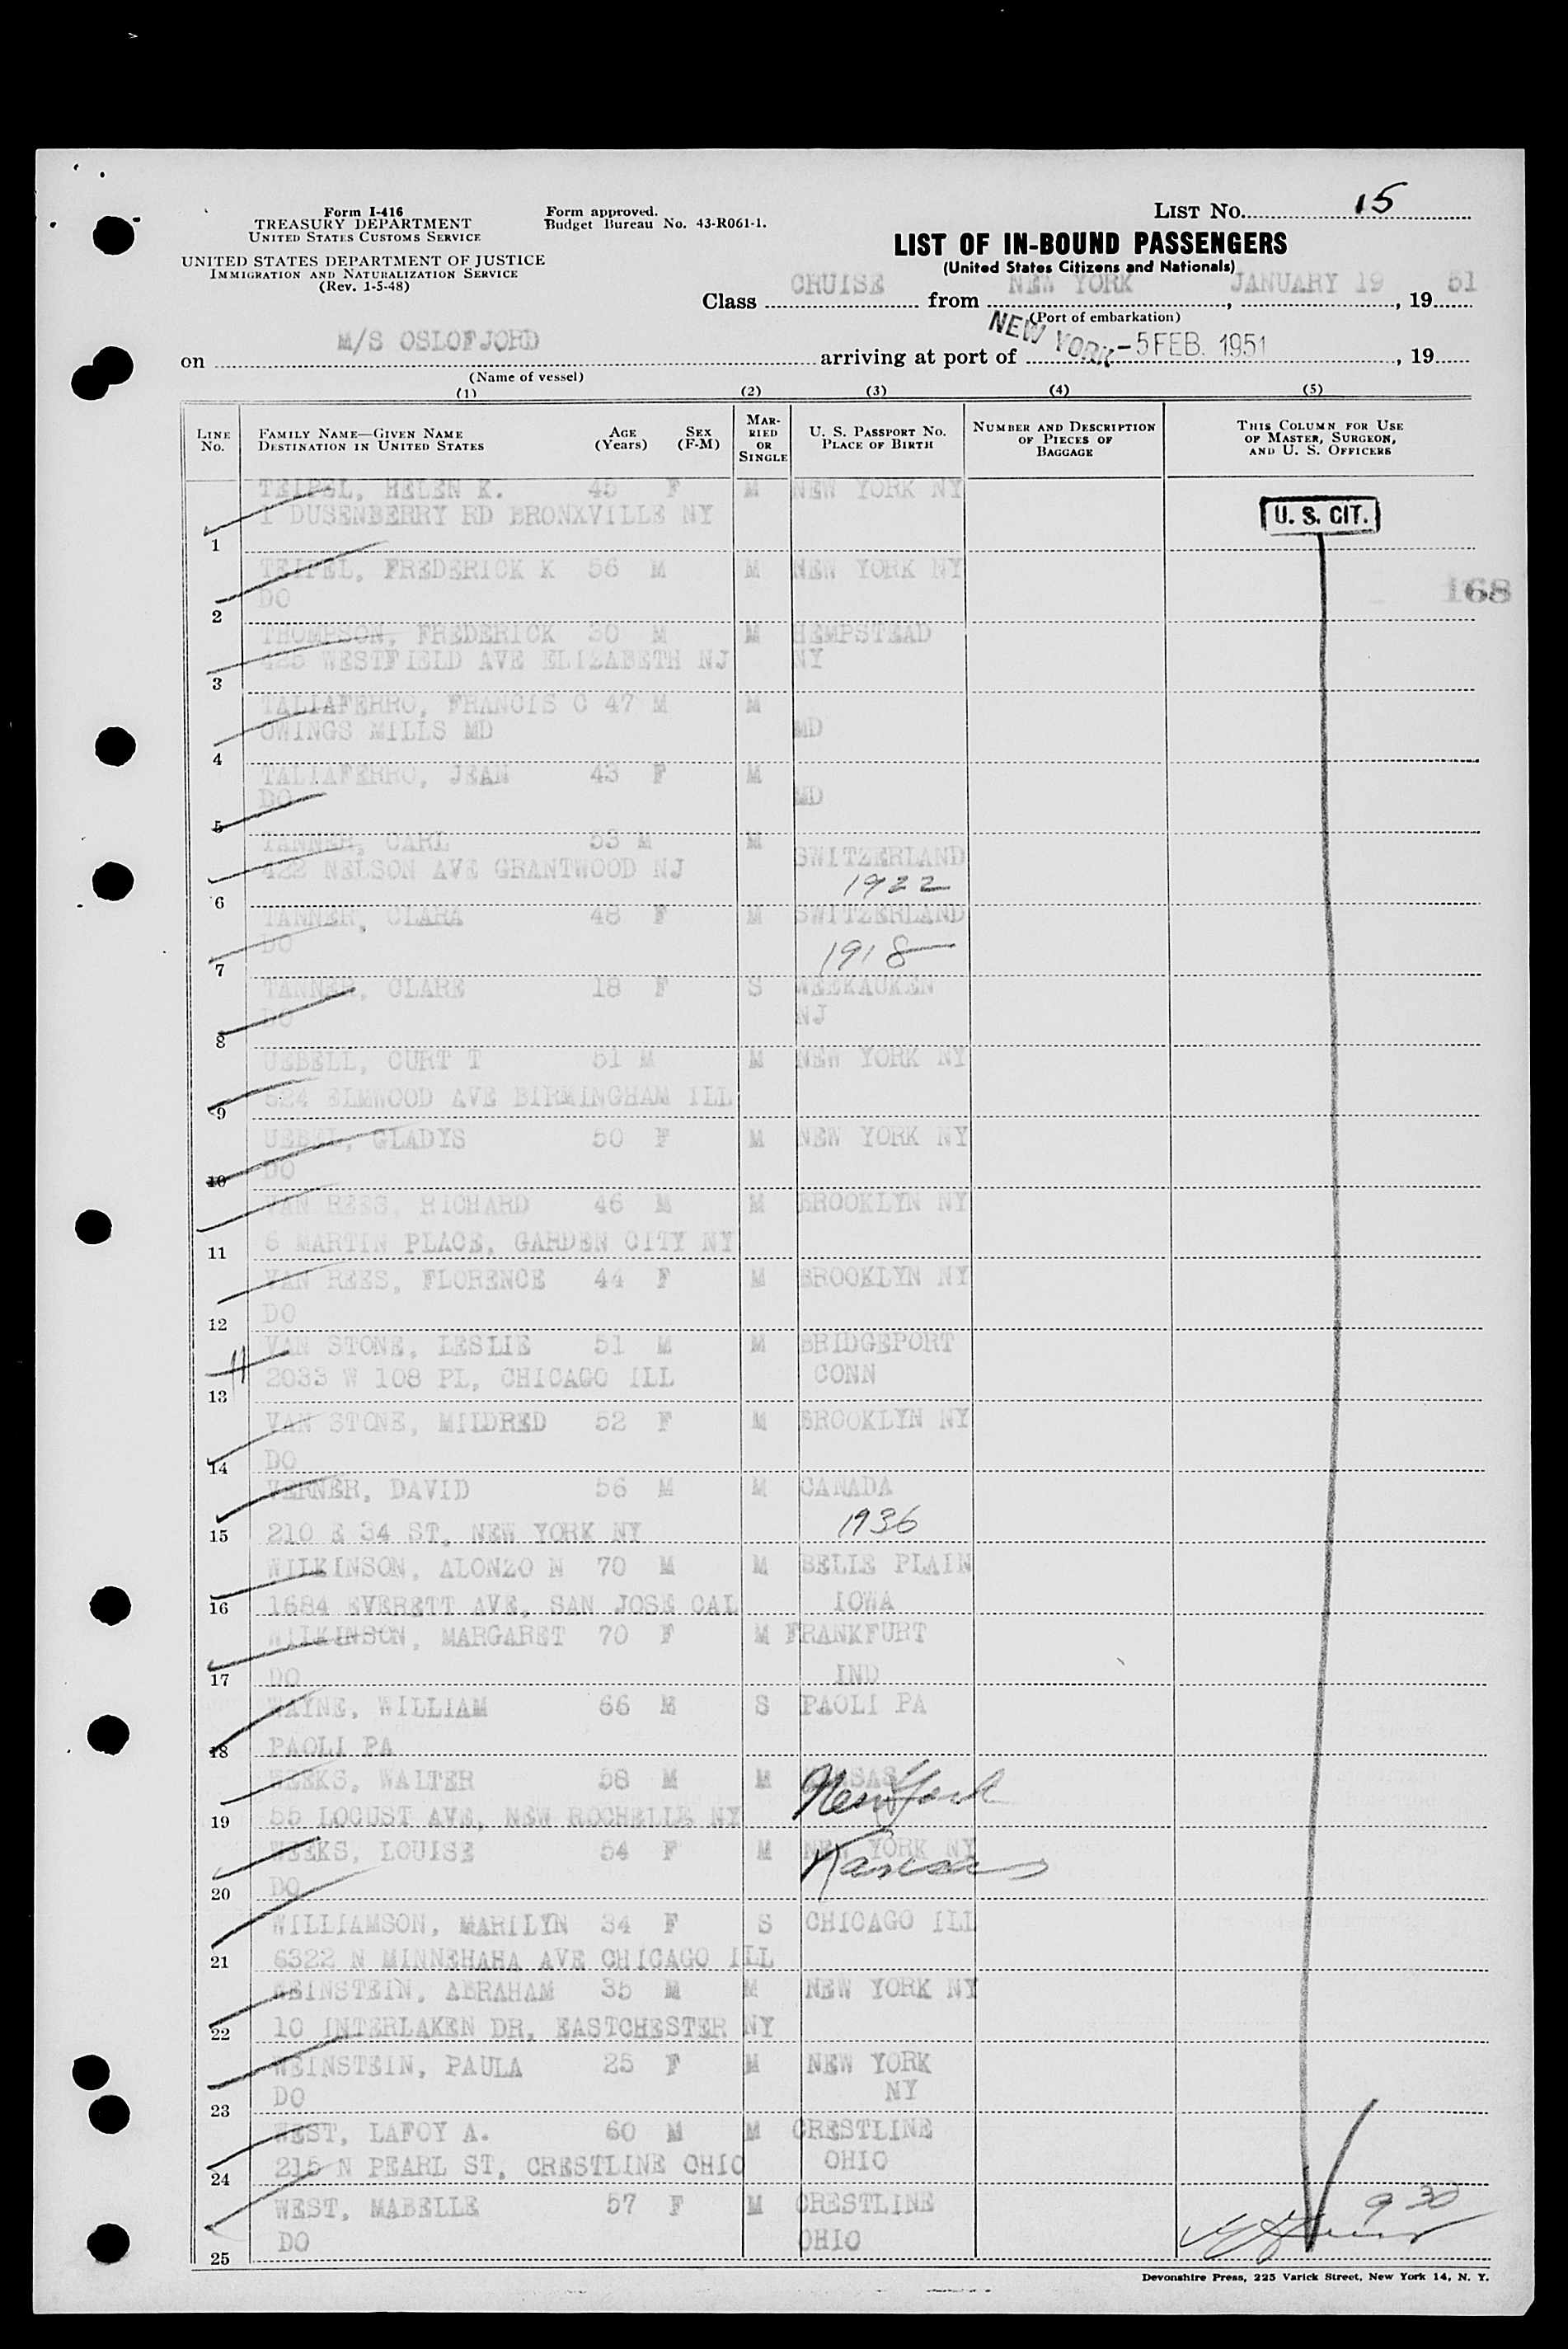 Form I-416
TREASURY DEPARTMENT
UNITED STATES CUSTOMS SERVICE
UNITED STATES DEPARTMENT OF JUSTICE
IMMIGRATION AND NATURALIZATION SERVICE
(Rev. 1-5-48)
Form approved.
Budget Bureau No. 43-R061-1.
LIST No. 15
LIST OF IN-BOUND PASSENGERS
(United States Citizens and Nationals)
Class CRUISE from NEW YORK, JANUARY 19, 19 51
(Port of embarkation)
on M/S OSLOFJORD arriving at port of NEW YORK -5 FEB. 1951, 19
(Name of vessel)
(1) (2) (3) (4) (5)
LINE No. FAMILY NAME—GIVEN NAME DESTINATION IN UNITED STATES AGE (Years) SEX (F-M) MARRIED OR SINGLE U. S. PASSPORT No. PLACE OF BIRTH NUMBER AND DESCRIPTION OF PIECES OF BAGGAGE THIS COLUMN FOR USE OF MASTER, SURGEON, AND U. S. OFFICERS
TEIPEL, HELEN K. 45 F M NEW YORK NY
1 DUSENBERRY RD BRONXVILLE NY U. S. CIT.
1
TEIPEL, FREDERICK K 56 M M NEW YORK NY
168
DO
2
THOMPSON, FREDERICK 30 M M HEMPSTEAD
425 WESTFIELD AVE ELIZABETH NJ NY
3
TALIAFERRO, FRANCIS C 47 M M
OWINGS MILLS MD MD
4
TALIAFERRO, JEAN 43 F M
DO MD
5
TANNER, CARL 53 M M SWITZERLAND
422 NELSON AVE GRANTWOOD NJ 1922
6
TANNER, CLARA 48 F M SWITZERLAND
DO 1918
7
TANNER, CLARE 18 F S WEEKAUKEN
DO NJ
8
UEBELL, CURT T 51 M M NEW YORK NY
524 ELMWOOD AVE BIRMINGHAM ILL
9
UEBEL, GLADYS 50 F M NEW YORK NY
DO
10
VAN REES, RICHARD 46 M M BROOKLYN NY
6 MARTIN PLACE, GARDEN CITY NY
11
VAN REES, FLORENCE 44 F M BROOKLYN NY
DO
12
VAN STONE, LESLIE 51 M M BRIDGEPORT
2033 W 108 PL, CHICAGO ILL CONN
13
VAN STONE, MILDRED 52 F M BROOKLYN NY
DO
14
VERNER, DAVID 56 M M CANADA
210 E 34 ST, NEW YORK NY 1936
15
WILKINSON, ALONZO N 70 M M BELLE PLAIN
1684 EVERETT AVE, SAN JOSE CAL IOWA
16
WILKINSON, MARGARET 70 F M FRANKFURT
DO IND
17
WAYNE, WILLIAM 66 M S PAOLI PA
PAOLI PA
18
WEEKS, WALTER 58 M M KANSAS New York
55 LOCUST AVE, NEW ROCHELLE NY
19
WEEKS, LOUISE 54 F M NEW YORK NY Kansas
DO
20
WILLIAMSON, MARILYN 34 F S CHICAGO ILL
6322 N MINNEHAHA AVE CHICAGO ILL
21
WEINSTEIN, ABRAHAM 35 M M NEW YORK NY
10 INTERLAKEN DR, EASTCHESTER NY
22
WEINSTEIN, PAULA 25 F M NEW YORK
DO NY
23
WEST, LAFOY A. 60 M M CRESTLINE
215 N PEARL ST, CRESTLINE OHIO OHIO
24
WEST, MABELLE 57 F M CRESTLINE
9 30
DO OHIO
25
Devonshire Press, 225 Varick Street, New York 14, N. Y.